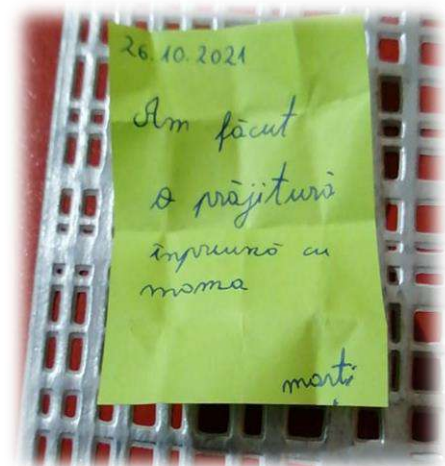 26.10.2021
Am făcut
o prăjitură
împreună cu
mama
marți